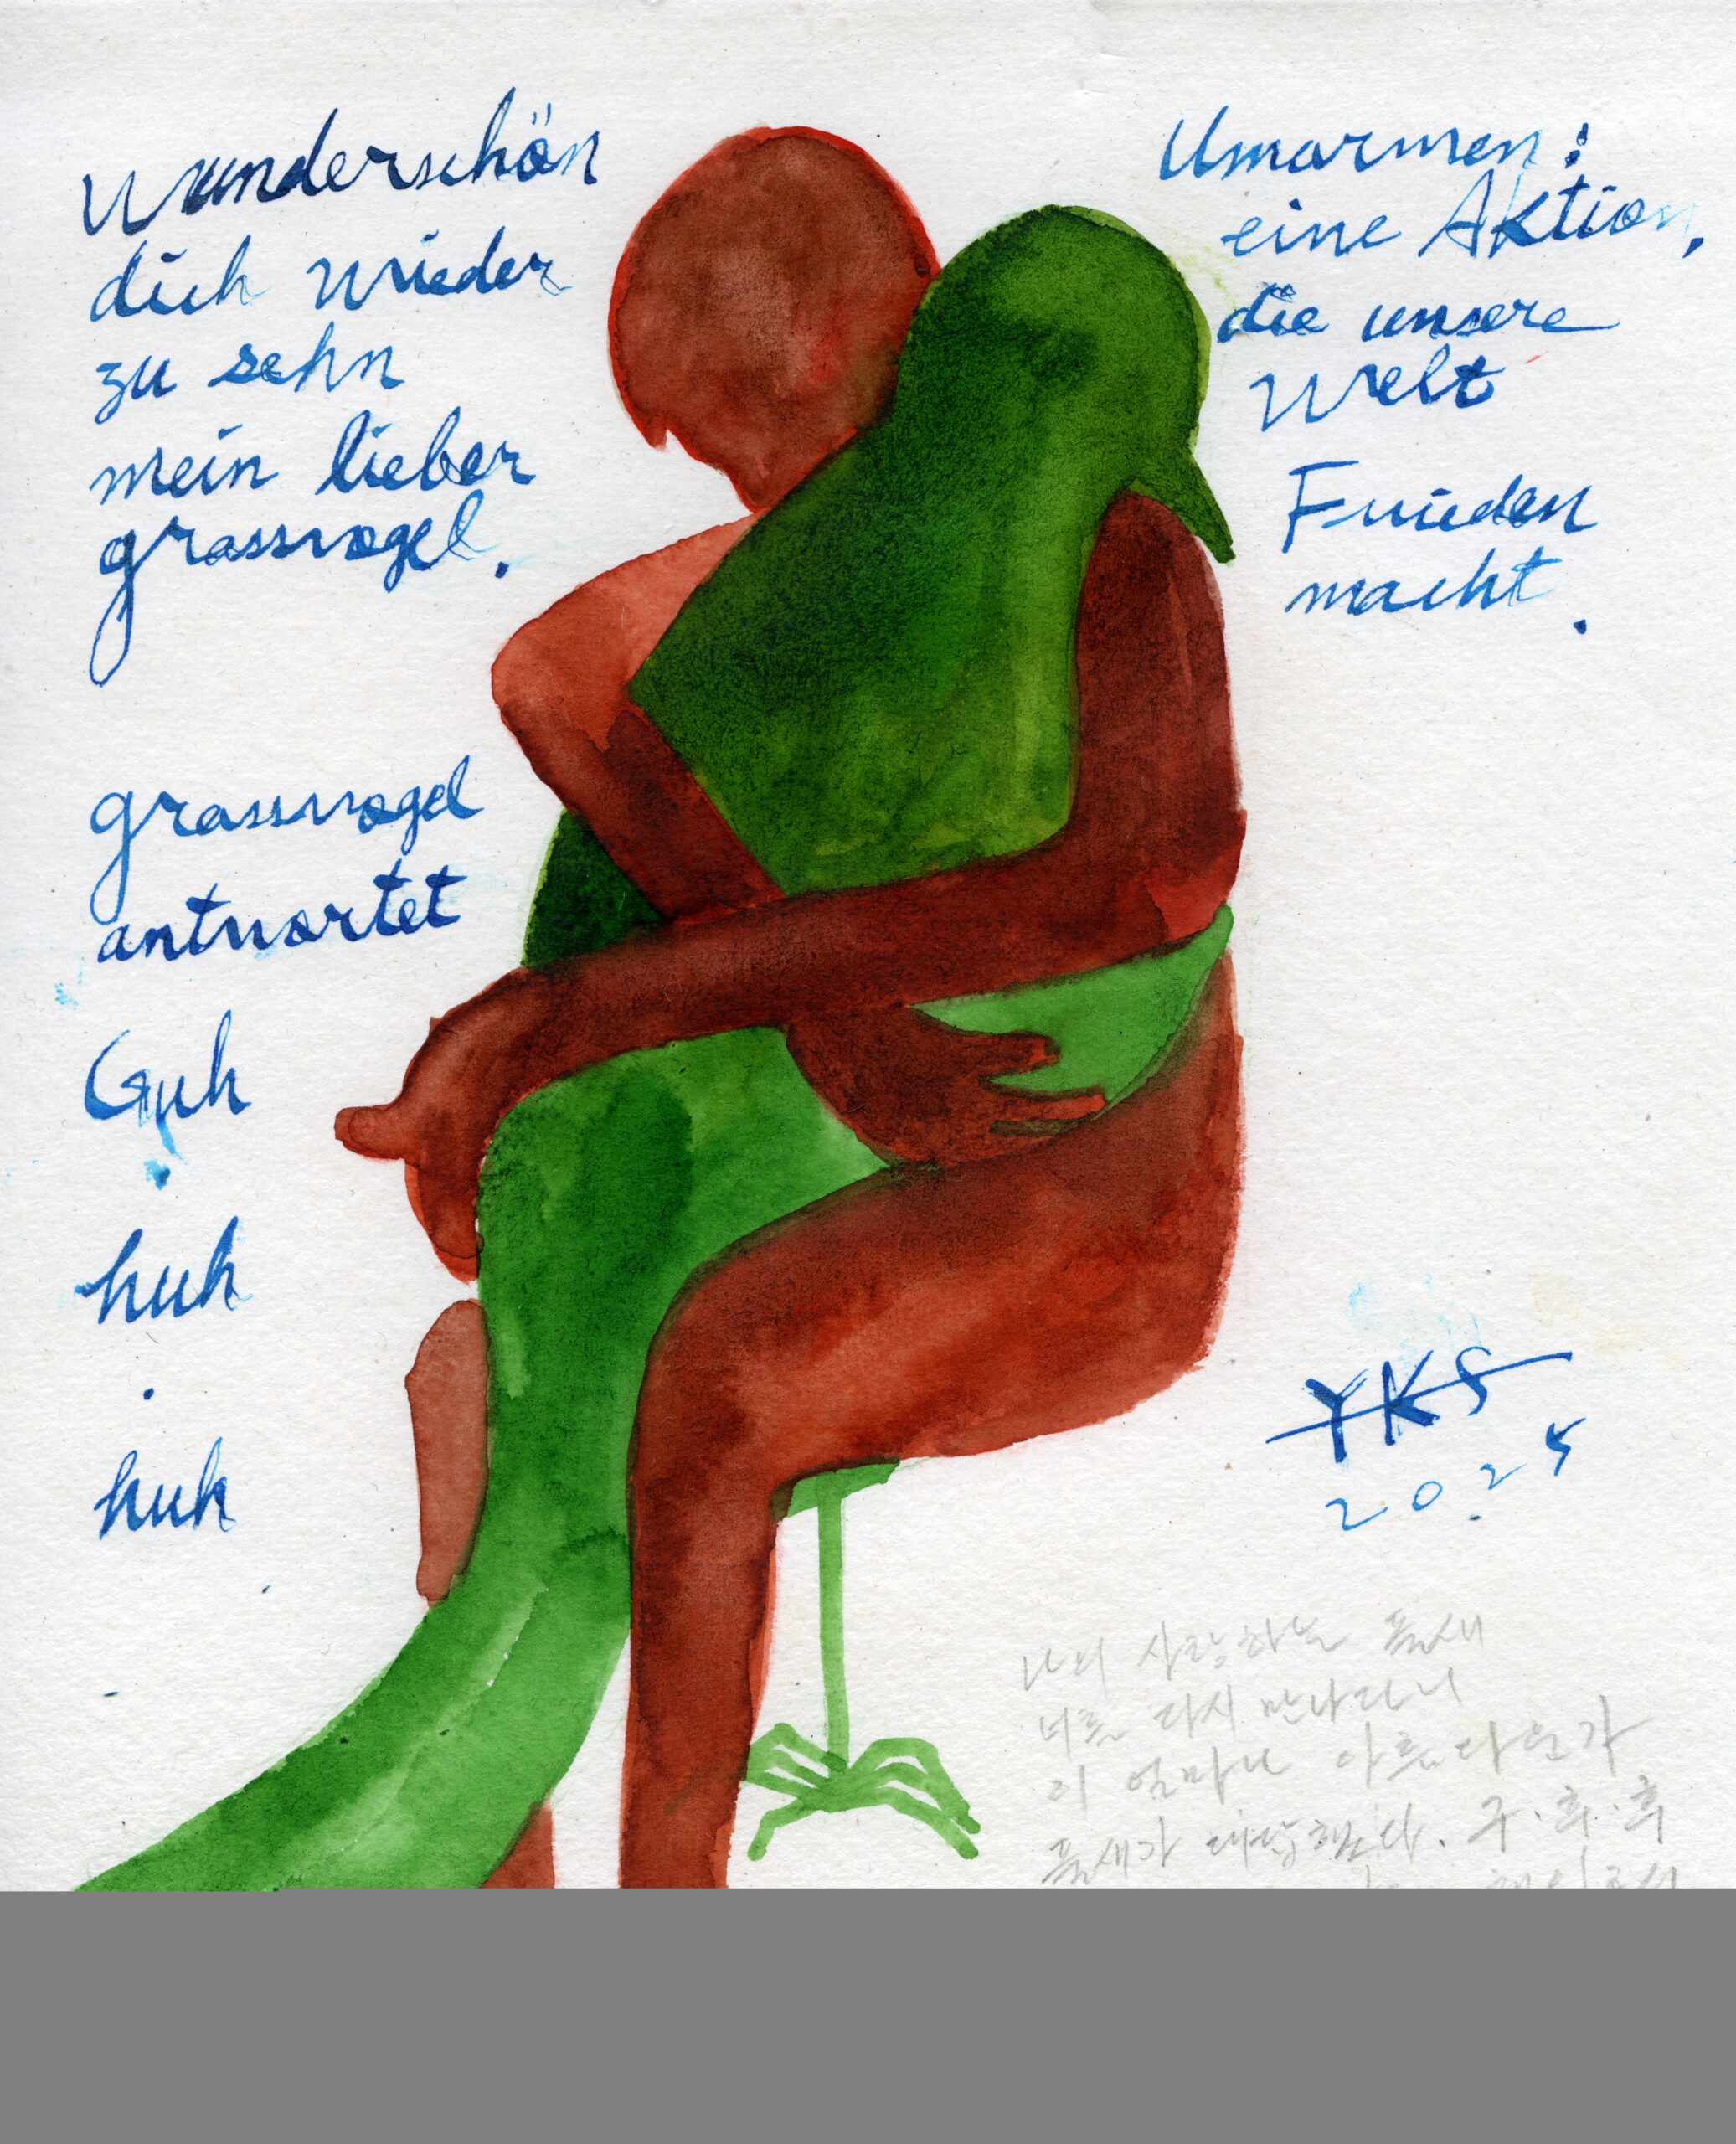 Wunderschön
dich wieder
zu sehn
mein lieber
grassvogel.
grassvogel
antwortet
Guh
.
huh
.
huh
Umarmen:
eine Aktion,
die unsere
Welt
Frieden
macht.
YKS
2025
나의 사랑하는 풀새
너를 다시 만나다니
이 얼마나 아름다운가
풀새가 대답했다. 구.후.후